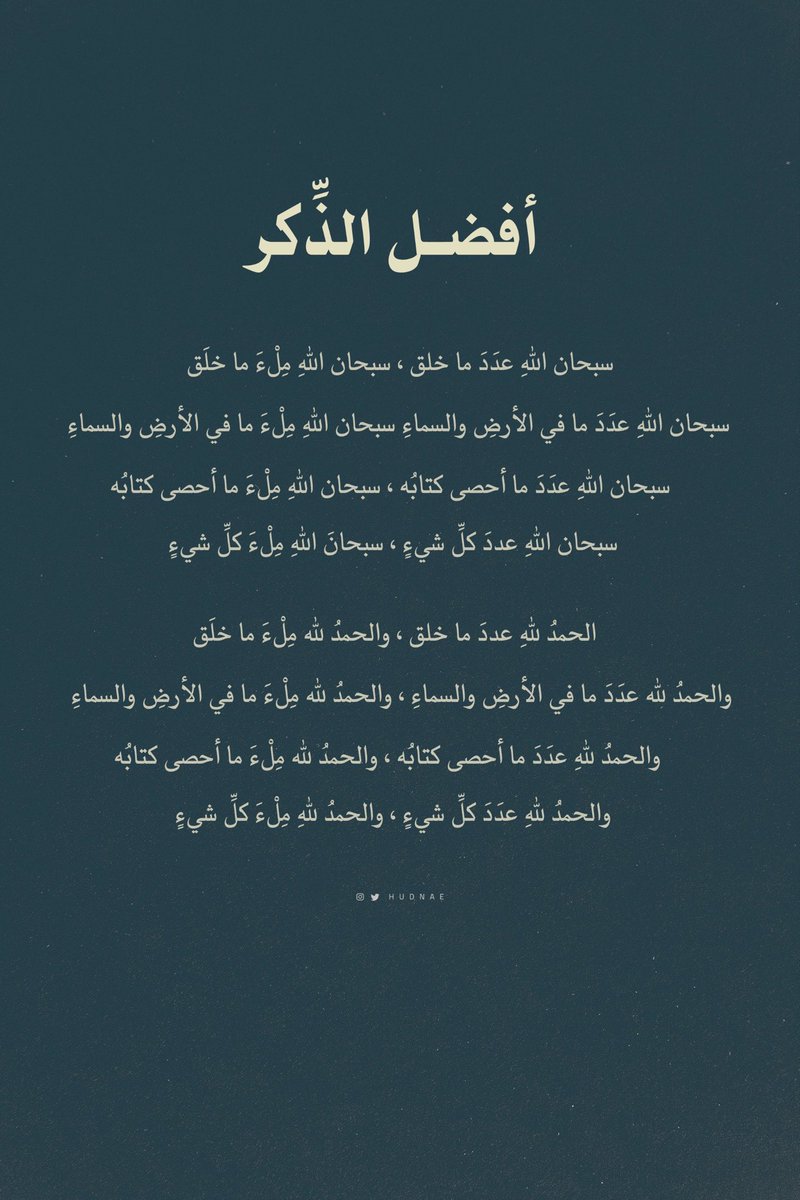 أفضـل الذِّكر
سبحان اللهِ عدَدَ ما خلق ، سبحان اللهِ مِلْءَ ما خلَق
سبحان اللهِ عدَدَ ما في الأرضِ والسماءِ سبحان اللهِ مِلْءَ ما في الأرضِ والسماءِ
سبحان اللهِ عدَدَ ما أحصى كتابُه ، سبحان اللهِ مِلْءَ ما أحصى كتابُه
سبحان اللهِ عددَ كلِّ شيءٍ ، سبحانَ اللهِ مِلْءَ كلِّ شيءٍ
الحمدُ للهِ عددَ ما خلق ، والحمدُ لله مِلْءَ ما خلَق
والحمدُ لله عدَدَ ما في الأرضِ والسماءِ ، والحمدُ لله مِلْءَ ما في الأرضِ والسماءِ
والحمدُ للهِ عدَدَ ما أحصى كتابُه ، والحمدُ لله مِلْءَ ما أحصى كتابُه
والحمدُ للهِ عدَدَ كلِّ شيءٍ ، والحمدُ للهِ مِلْءَ كلِّ شيءٍ
HUDNAE